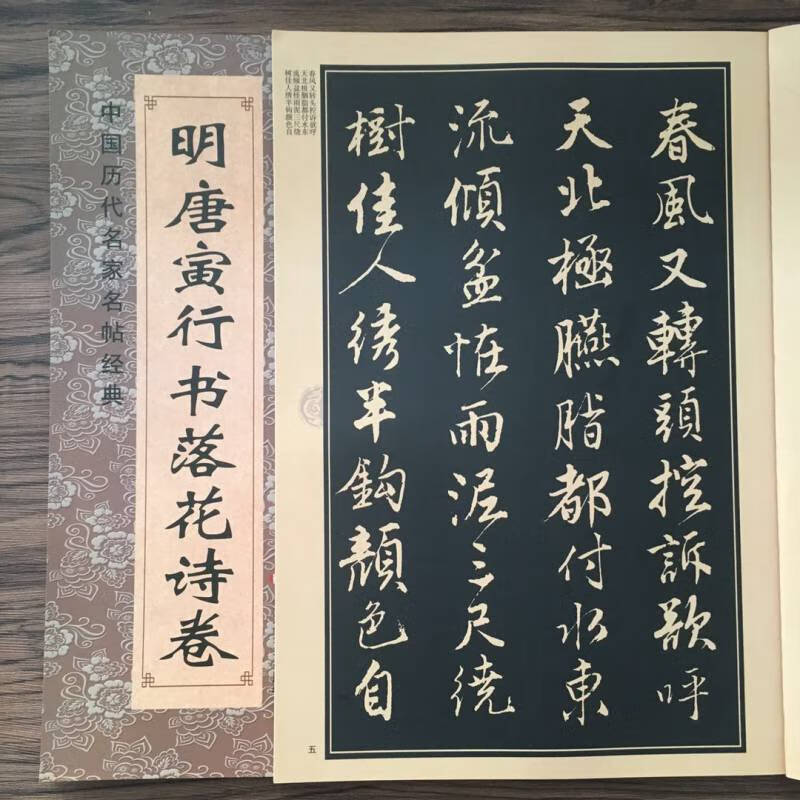 中国历代名家名帖经典
明唐寅行书落花诗卷
春风又转头控诉欲呼
天北极胭脂都付水东
流倾盆怪雨泥三尺绕
树佳人绣半钩颜色自
春風又轉頭控訴欲呼
天北極臙脂都付水東
流傾盆恠雨泥三尺繞
樹佳人綉半鈎顏色自
五